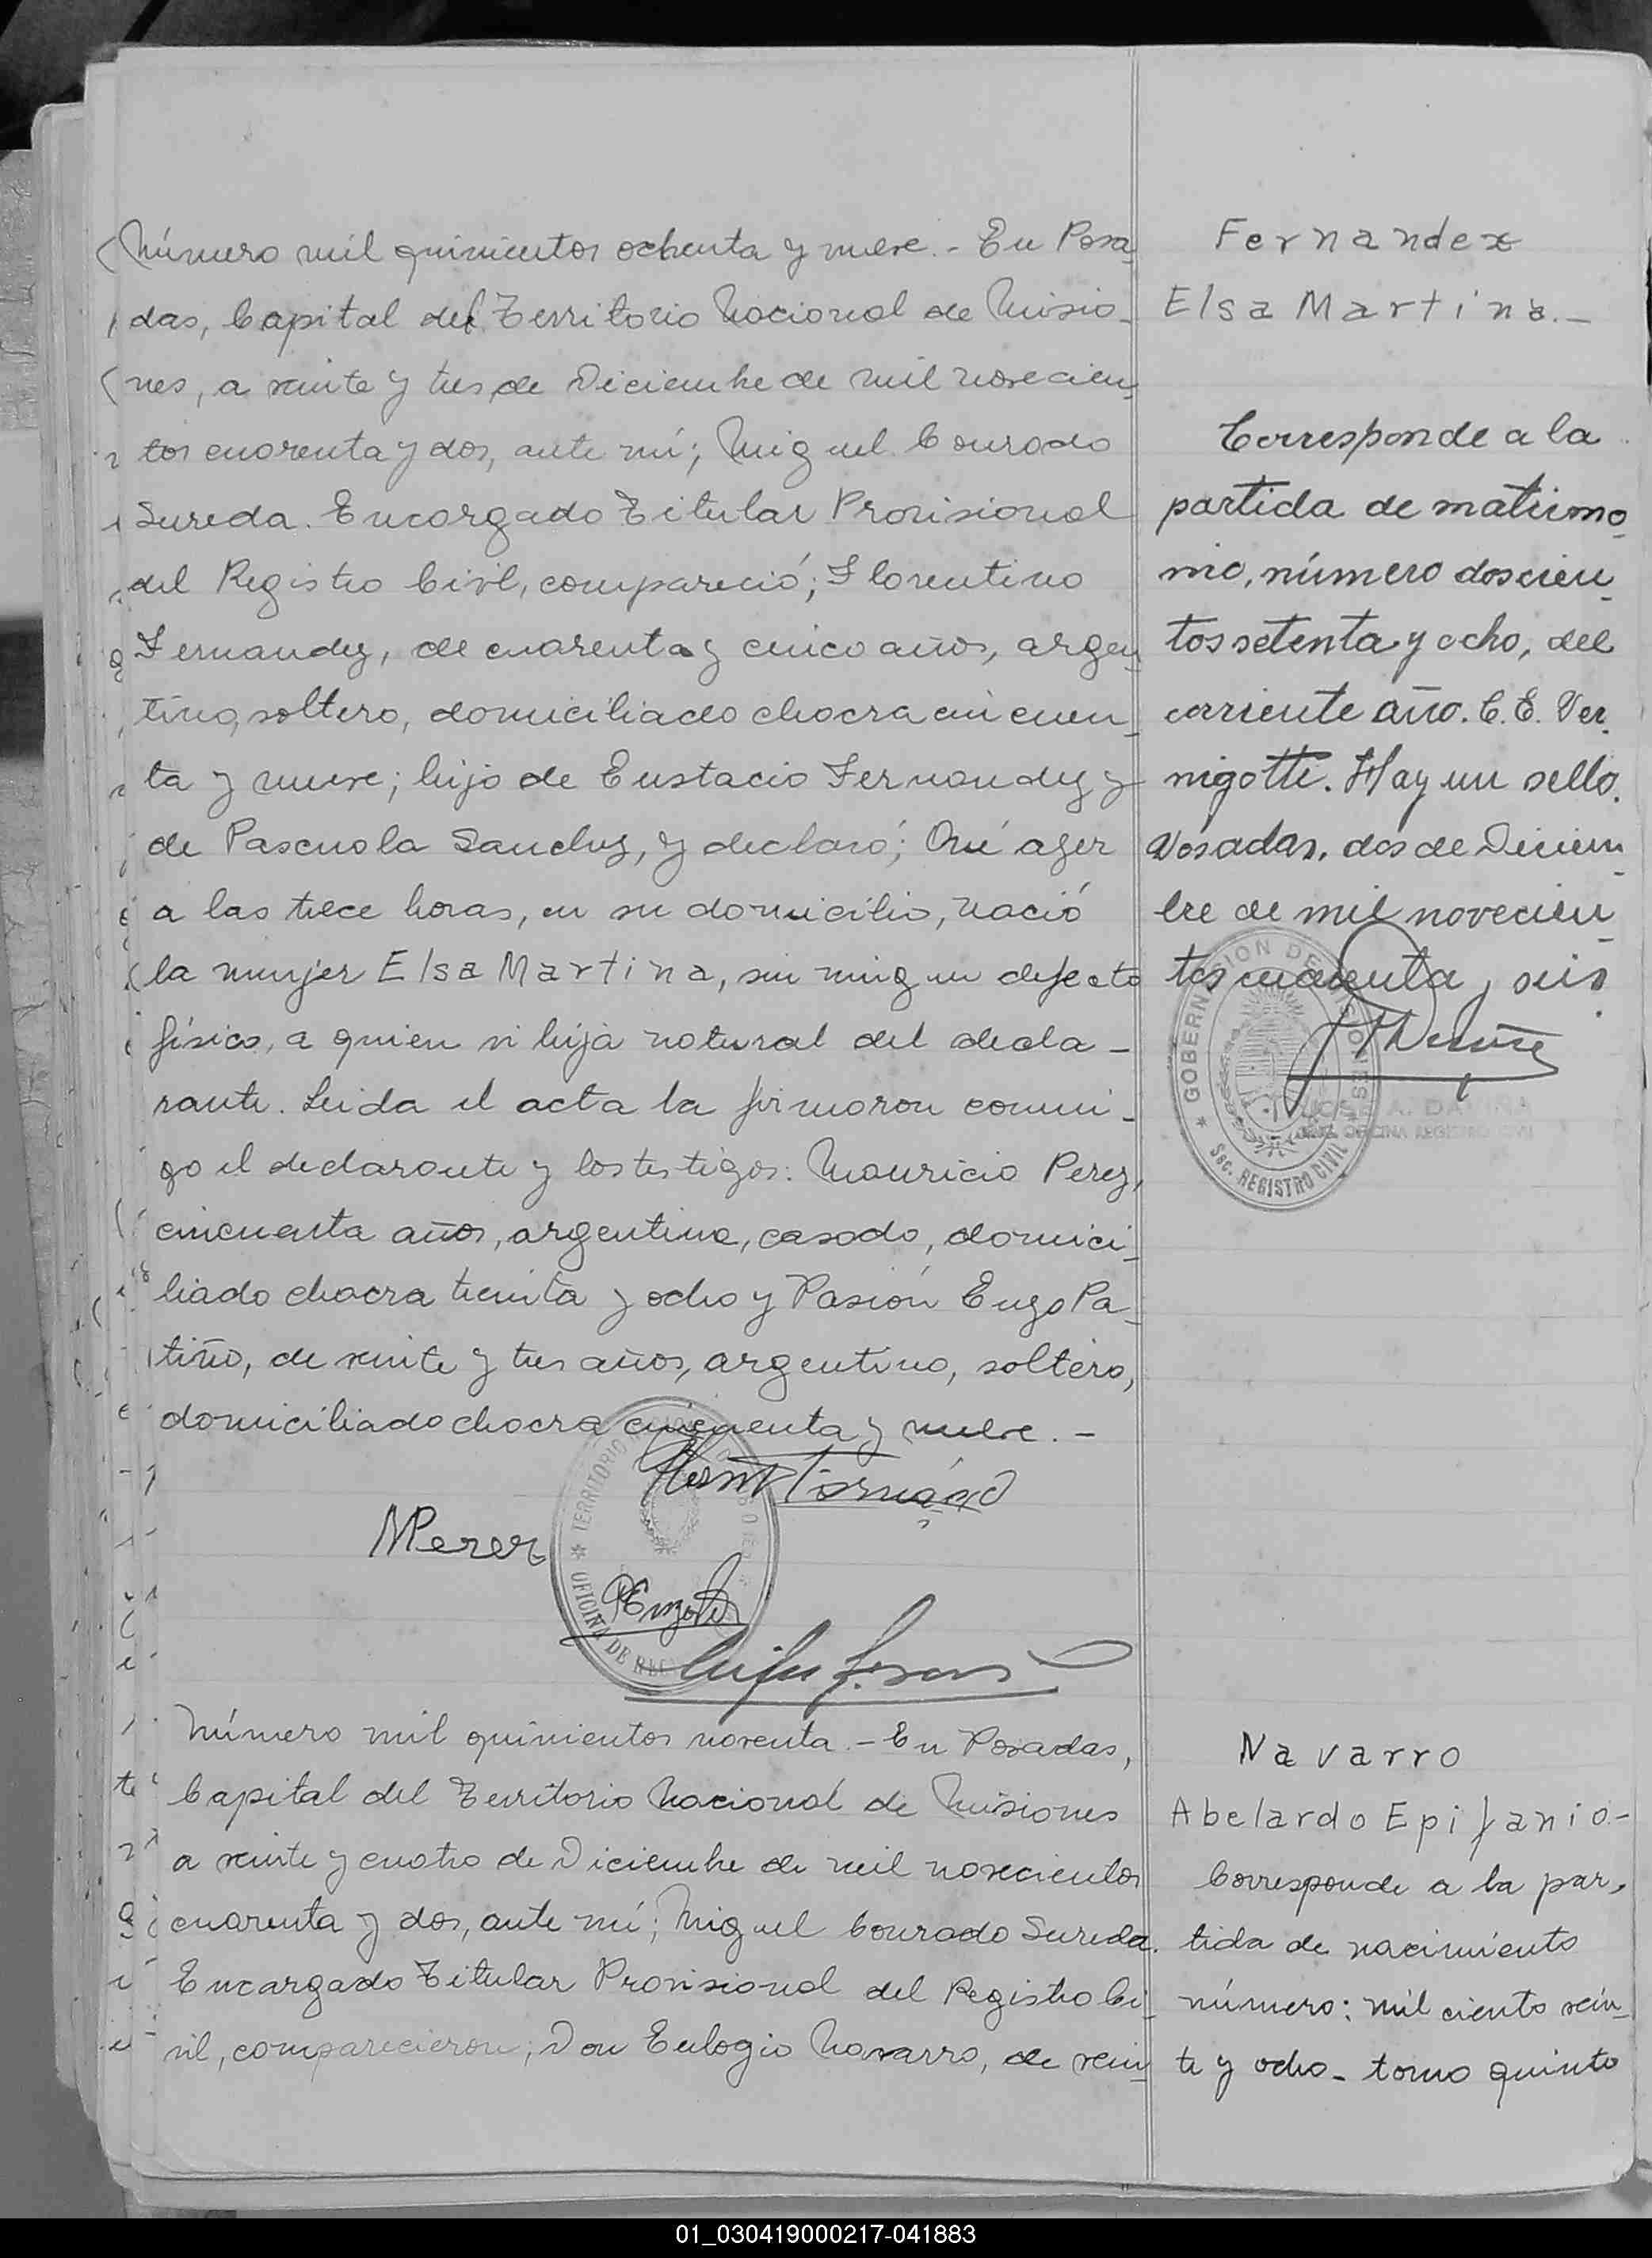 Número mil quinientos ochenta y nueve.- En Posa-
das, Capital del Territorio Nacional de Misio-
nes, a veinte y tres de Diciembre de mil novecien-
tos cuarenta y dos, ante mí; Miguel Conrado
Sureda. Encargado Titular Provisional
del Registro Civil, compareció; Florentino
Fernandez, de cuarenta y cinco años, argen-
tino, soltero, domiciliado chacra cincuen-
ta y nueve; hijo de Eustacio Fernandez y
de Pascuala Sanchez, y declaró; Qué ayer
a las trece horas, en su domicilio, nació
la mujer Elsa Martina, sin ningun defecto
físico, a quien vi hija natural del decla-
rante. Leida el acta la firmaron conmi-
go el declarante y los testigos: Mauricio Perez,
cincuenta años, argentino, casado, domici-
liado chacra treinta y ocho y Pasión Enzo Pa-
tiño, de veinte y tres años, argentino, soltero,
domiciliado chacra cincuenta y nueve.-
MPerez
Fernandez
Elsa Martina.-
Corresponde a la
partida de matrimo-
nio, número doscien-
tos setenta y ocho, del
corriente año. C. E. Ver-
nigotti. Hay un sello.
Posadas, dos de Diciem-
bre de mil novecien-
tos cuarenta y seis.
GOBERNACION DE MISIONES
Sec. REGISTRO CIVIL
JOSE A. DAVIÑA
JEFE OFICINA REGISTRO CIVIL
TERRITORIO
OFICINA DE
Número mil quinientos noventa.- En Posadas,
Capital del Territorio Nacional de Misiones
a veinte y cuatro de Diciembre de mil novecientos
cuarenta y dos, ante mí; Miguel Conrado Sureda.
Encargado Titular Provisional del Registro Ci-
vil, comparecieron; Don Eulogio Navarro, de vein-
Navarro
Abelardo Epifanio.-
Corresponde a la par-
tida de nacimiento
número: mil ciento vein-
te y ocho- tomo quinto
01_030419000217-041883